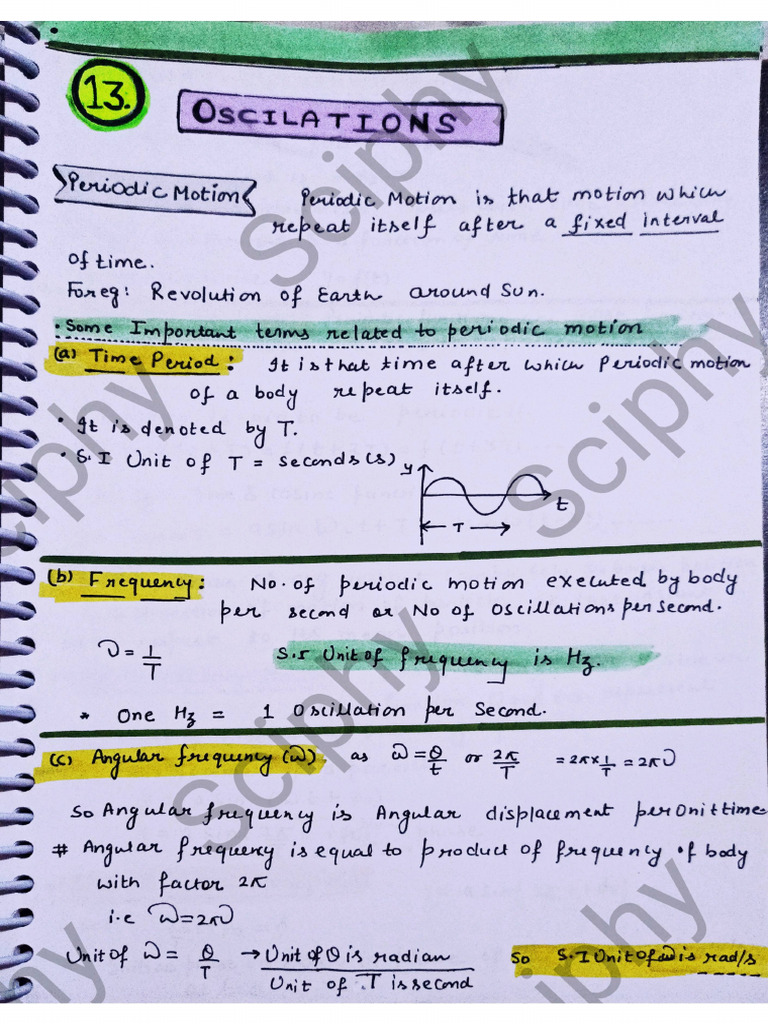 13.
OSCILATIONS
Periodic Motion
Periodic Motion is that motion which
repeat itself after a fixed interval
of time.
For eg: Revolution of Earth around Sun.
• Some Important terms related to periodic motion
(a) Time Period: It is that time after which Periodic motion
of a body repeat itself.
• It is denoted by T.
• S.I Unit of T = seconds (s)
y
t
T
(b) Frequency: No. of periodic motion executed by body
per second or No of Oscillations per second.
ν = 1/T
S.I Unit of frequency is Hz.
* One Hz = 1 Oscillation per Second.
(c) Angular frequency (ω) as ω = θ/t or 2π/T = 2π × 1/T = 2πν
So Angular frequency is Angular displacement per Unit time.
# Angular frequency is equal to product of frequency of body
with factor 2π
i.e ω = 2πν
Unit of ω = θ/T → Unit of θ is radian / Unit of T is second
So S.I Unit of ω is rad/s
Sciphy
Sciphy
Sciphy
Sciphy
Sciphy